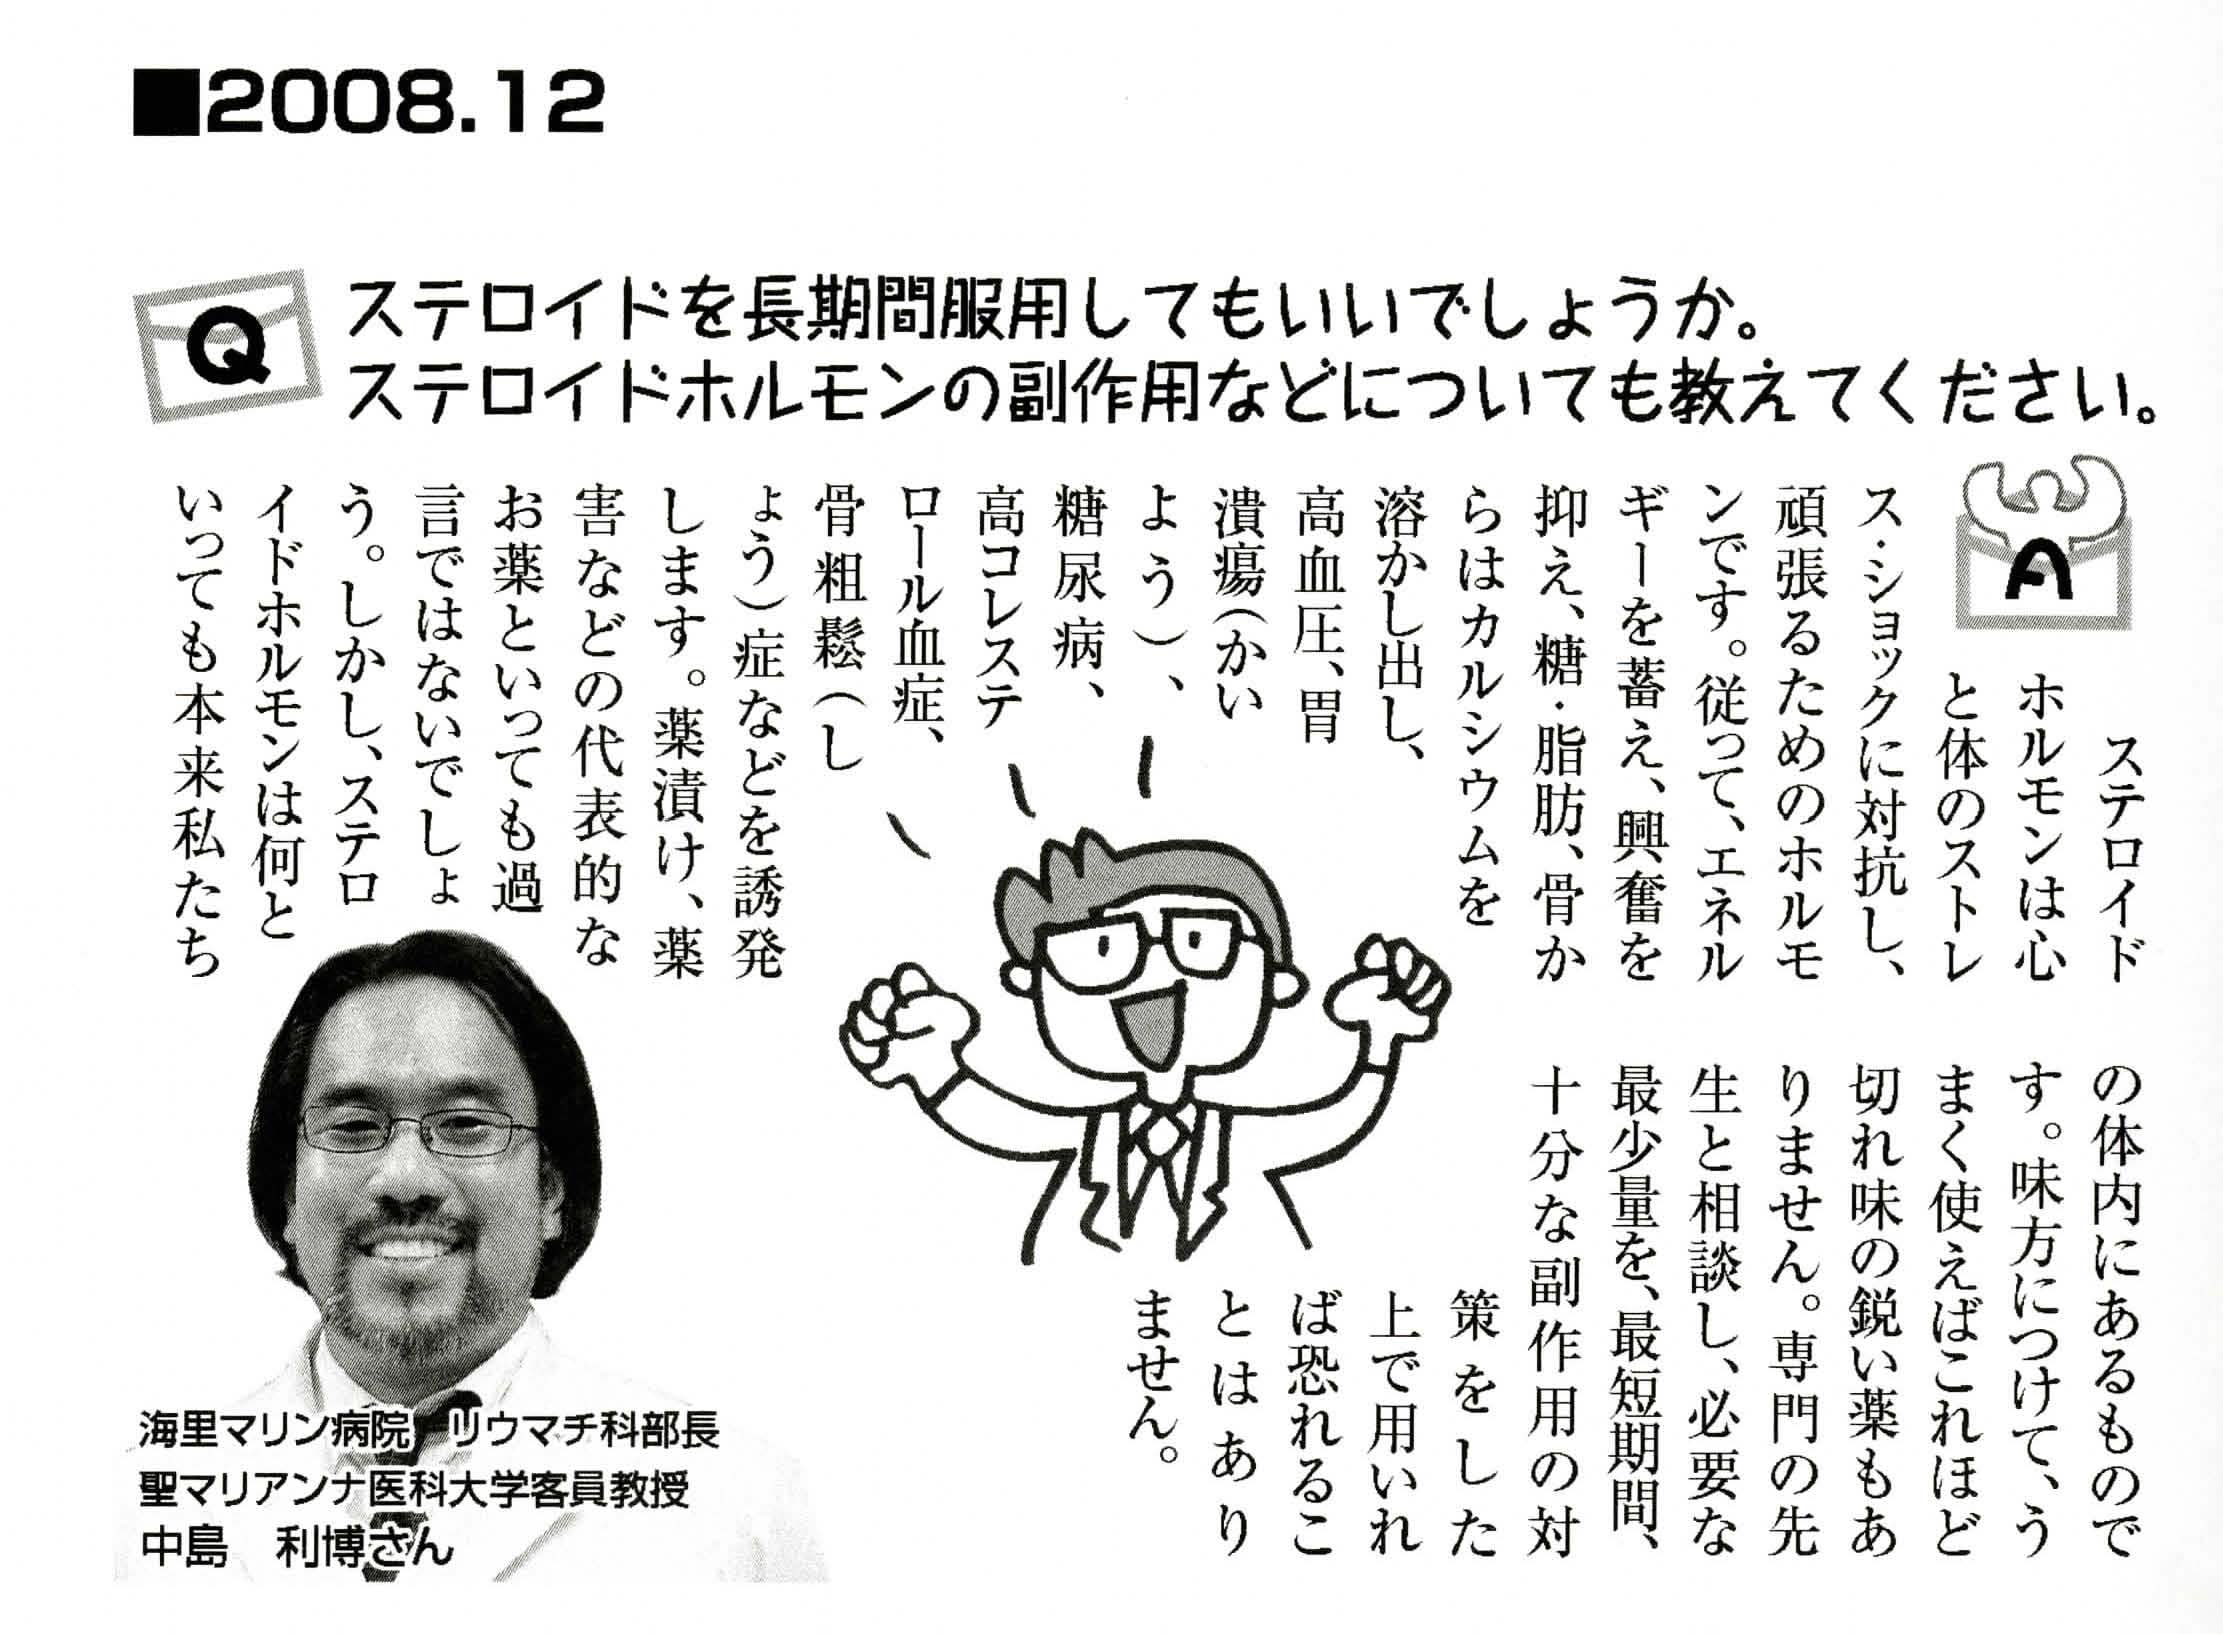 ■2008.12
Q
ステロイドを長期間服用してもいいでしょうか。
ステロイドホルモンの副作用などについても教えてください。
A
ステロイド
ホルモンは心
と体のストレ
ス・ショックに対抗し、
頑張るためのホルモ
ンです。従って、エネル
ギーを蓄え、興奮を
抑え、糖・脂肪、骨か
らはカルシウムを
溶かし出し、
高血圧、胃
潰瘍(かい
よう)、
糖尿病、
高コレステ
ロール血症、
骨粗鬆(し
ょう)症などを誘発
します。薬漬け、薬
害などの代表的な
お薬といっても過
言ではないでしょ
う。しかし、ステロ
イドホルモンは何と
いっても本来私たち
の体内にあるもので
す。味方につけて、う
まく使えばこれほど
切れ味の鋭い薬もあ
りません。専門の先
生と相談し、必要な
最少量を、最短期間、
十分な副作用の対
策をした
上で用いれ
ば恐れるこ
とはあり
ません。
海里マリン病院　リウマチ科部長
聖マリアンナ医科大学客員教授
中島　利博さん